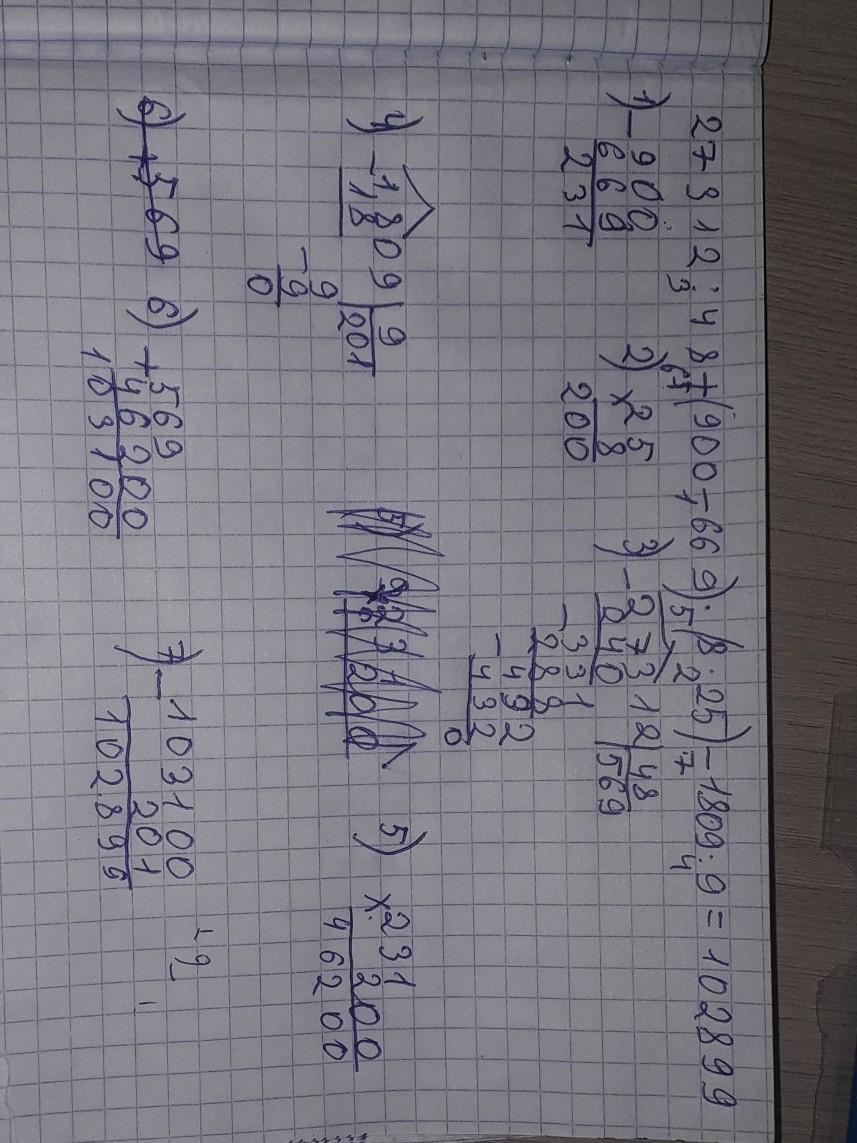 27312:48+(900-669)·(8·25)-1809:9=102899
3 6 1 5 2 7 4
1) -900
669
231
2) ×25
8
200
3) -27312|48
240 |569
-331
288
-492
432
0
4) -1809|9
18 |201
-9
9
0
5) ×231
200
46200
6) +569
6) +569
46200
103100
7) -103100
201
102899